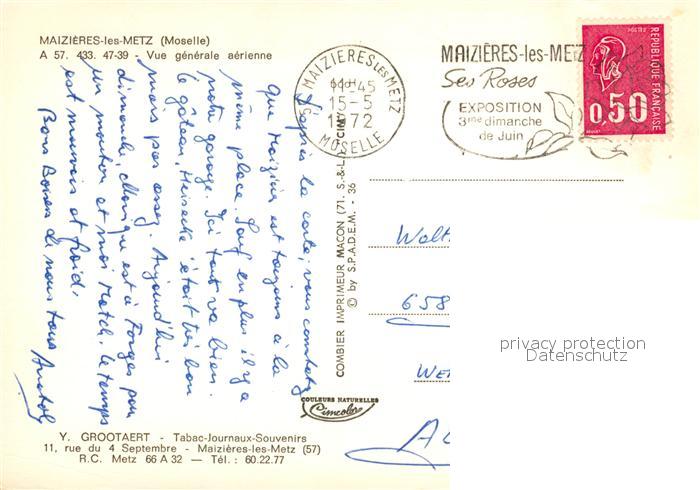 MAIZIÈRES-les-METZ (Moselle)
A 57. 433. 47-39 - Vue générale aérienne
57 MAIZIERES LES METZ
11H45
15-5
1972
MOSELLE
MAIZIÈRES-les-METZ
Ses Roses
EXPOSITION
3me dimanche
de Juin
POSTES
REPUBLIQUE FRANÇAISE
0,50
D'après la carte, vous constatez
que Maizières est toujours à la
même place. Sauf en plus il y a
notre garage. Ici tout va bien.
le gâteau, était très bon
mais pas assez. Aujourd'hui
dimanche, Monique est à Forges pour
un mouton et moi Match. le temps
est mauvais et froid.
Bons Baisers de nous tous Anatole
COMBIER IMPRIMEUR MACON (71, S.-&-L.) CIM
© by S.P.A.D.E.M. - 36
Walt
658
We
privacy protection
Datenschutz
COULEURS NATURELLES
Cimcolor
Y. GROOTAERT - Tabac-Journaux-Souvenirs
11, rue du 4 Septembre - Maizières-les-Metz (57)
R.C. Metz 66 A 32 — Tél. : 60.22.77